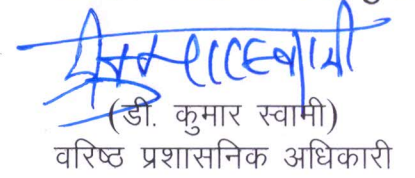 (डी. कुमार स्वामी)
वरिष्ठ प्रशासनिक अधिकारी